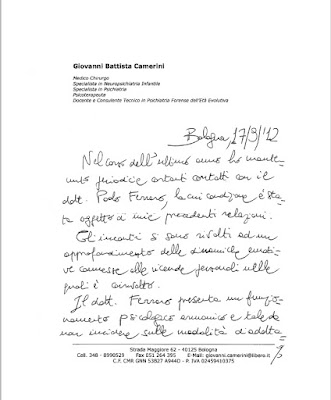 Giovanni Battista Camerini
Medico Chirurgo
Specialista in Neuropsichiatria Infantile
Specialista in Psichiatria
Psicoterapeuta
Docente e Consulente Tecnico in Psichiatria Forense dell'Età Evolutiva
Bologna, 17/9/'12
Nel corso dell'ultimo anno ho mante-
nuto periodici costanti contatti con il
dott. Paolo Ferraro, la cui condizione è sta-
ta oggetto di mie precedenti relazioni.
Gli incontri si sono rivolti ad un
approfondimento delle dinamiche emoti-
ve connesse alle vicende personali nelle
quali è coinvolto.
Il dott. Ferraro presenta un funzio-
namento psicologico armonico e tale da
non incidere sulle modalità di adatta-
Strada Maggiore 62 - 40125 Bologna
Cell. 348 - 8990529 Fax 051 264 395 E-Mail: giovanni.camerini@libero.it
C.F. CMR GNN 53B27 A944O - P. IVA 02459410375